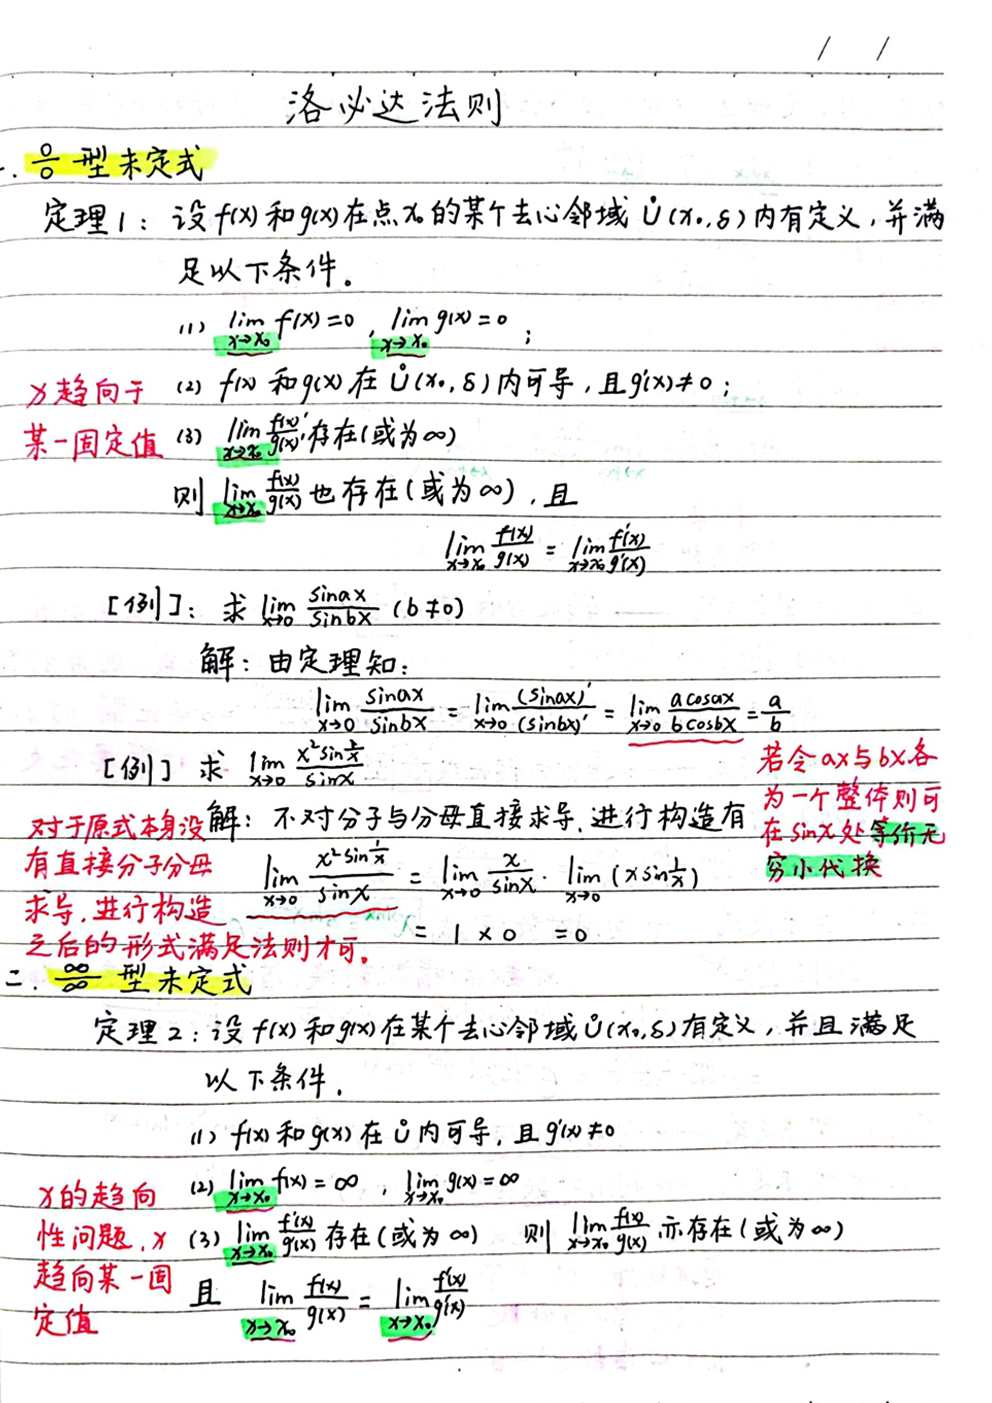 / /
洛必达法则
一. 0/0 型未定式
定理1: 设 f(x) 和 g(x) 在点 x₀ 的某个去心邻域 Ů(x₀,δ) 内有定义, 并满
足以下条件。
(1) lim_{x→x₀} f(x)=0 , lim_{x→x₀} g(x)=0 ;
(2) f(x) 和 g(x) 在 Ů(x₀,δ) 内可导, 且 g'(x)≠0 ;
x 趋向于
某一固定值
(3) lim_{x→x₀} f(x)'/g(x)' 存在(或为∞)
则 lim_{x→x₀} f(x)/g(x) 也存在(或为∞), 且
lim_{x→x₀} f(x)/g(x) = lim_{x→x₀} f'(x)/g'(x)
[例]: 求 lim_{x→0} sinax/sinbx (b≠0)
解: 由定理知:
lim_{x→0} sinax/sinbx = lim_{x→0} (sinax)'/(sinbx)' = lim_{x→0} acosax/bcosbx = a/b
若令 ax 与 bx 各
为一个整体则可
在 sinx 处等价无
穷小代换
[例] 求 lim_{x→0} x²sin(1/x)/sinx
解: 不对分子与分母直接求导, 进行构造有
对于原式本身没
有直接分子分母
求导, 进行构造
之后的形式满足法则才可。
lim_{x→0} x²sin(1/x)/sinx = lim_{x→0} x/sinx · lim_{x→0} (xsin(1/x))
= 1 × 0 = 0
二. ∞/∞ 型未定式
定理2: 设 f(x) 和 g(x) 在某个去心邻域 Ů(x₀,δ) 有定义, 并且满足
以下条件.
(1) f(x) 和 g(x) 在 Ů 内可导, 且 g'(x)≠0
(2) lim_{x→x₀} f(x) = ∞ , lim_{x→x₀} g(x) = ∞
x 的趋向
性问题, x
趋向某一固
定值
(3) lim_{x→x₀} f'(x)/g'(x) 存在(或为∞) 则 lim_{x→x₀} f(x)/g(x) 亦存在(或为∞)
且 lim_{x→x₀} f(x)/g(x) = lim_{x→x₀} f'(x)/g'(x)